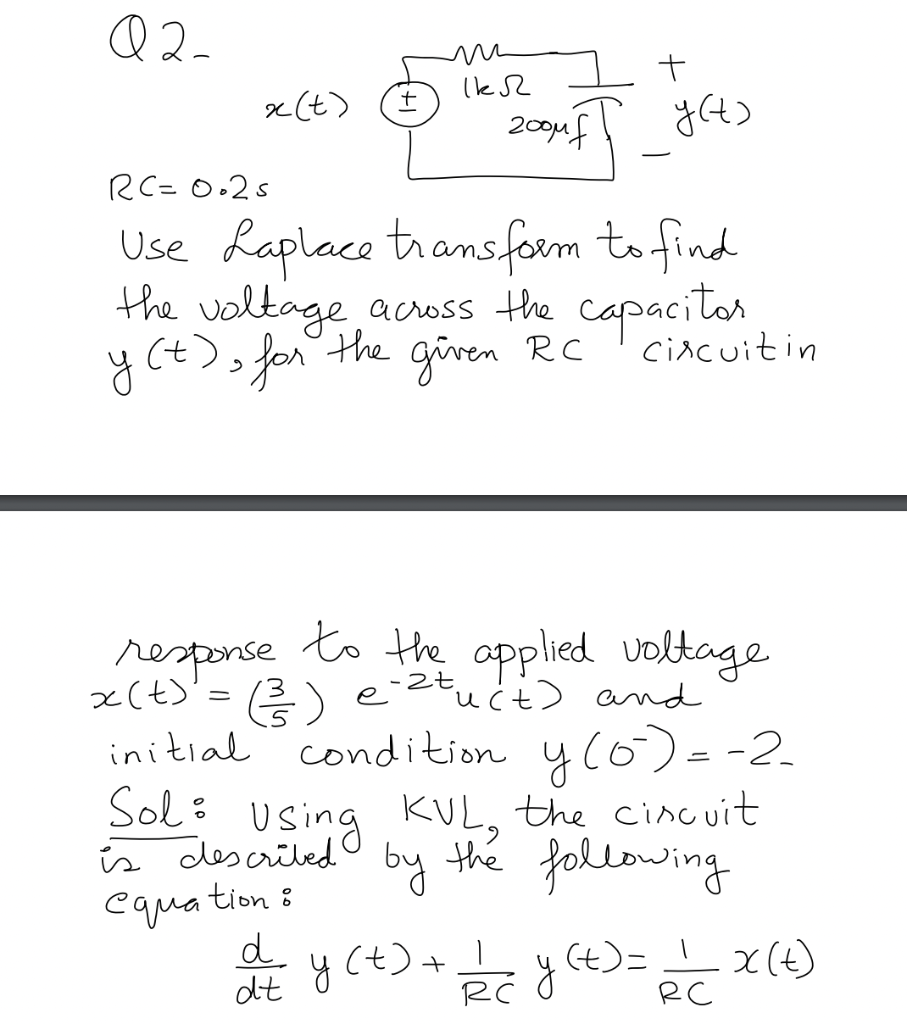 Q2-
x(t) ± 1kΩ 200μf + y(t) -
RC = 0.2s
Use Laplace transform to find
the voltage across the capacitor
y(t), for the given RC circuit in
response to the applied voltage
x(t) = (3/5) e^{-2t} u(t) and
initial condition y(0^-) = -2-
Sol: Using KVL, the circuit
is described by the following
equation:
d/dt y(t) + 1/RC y(t) = 1/RC x(t)